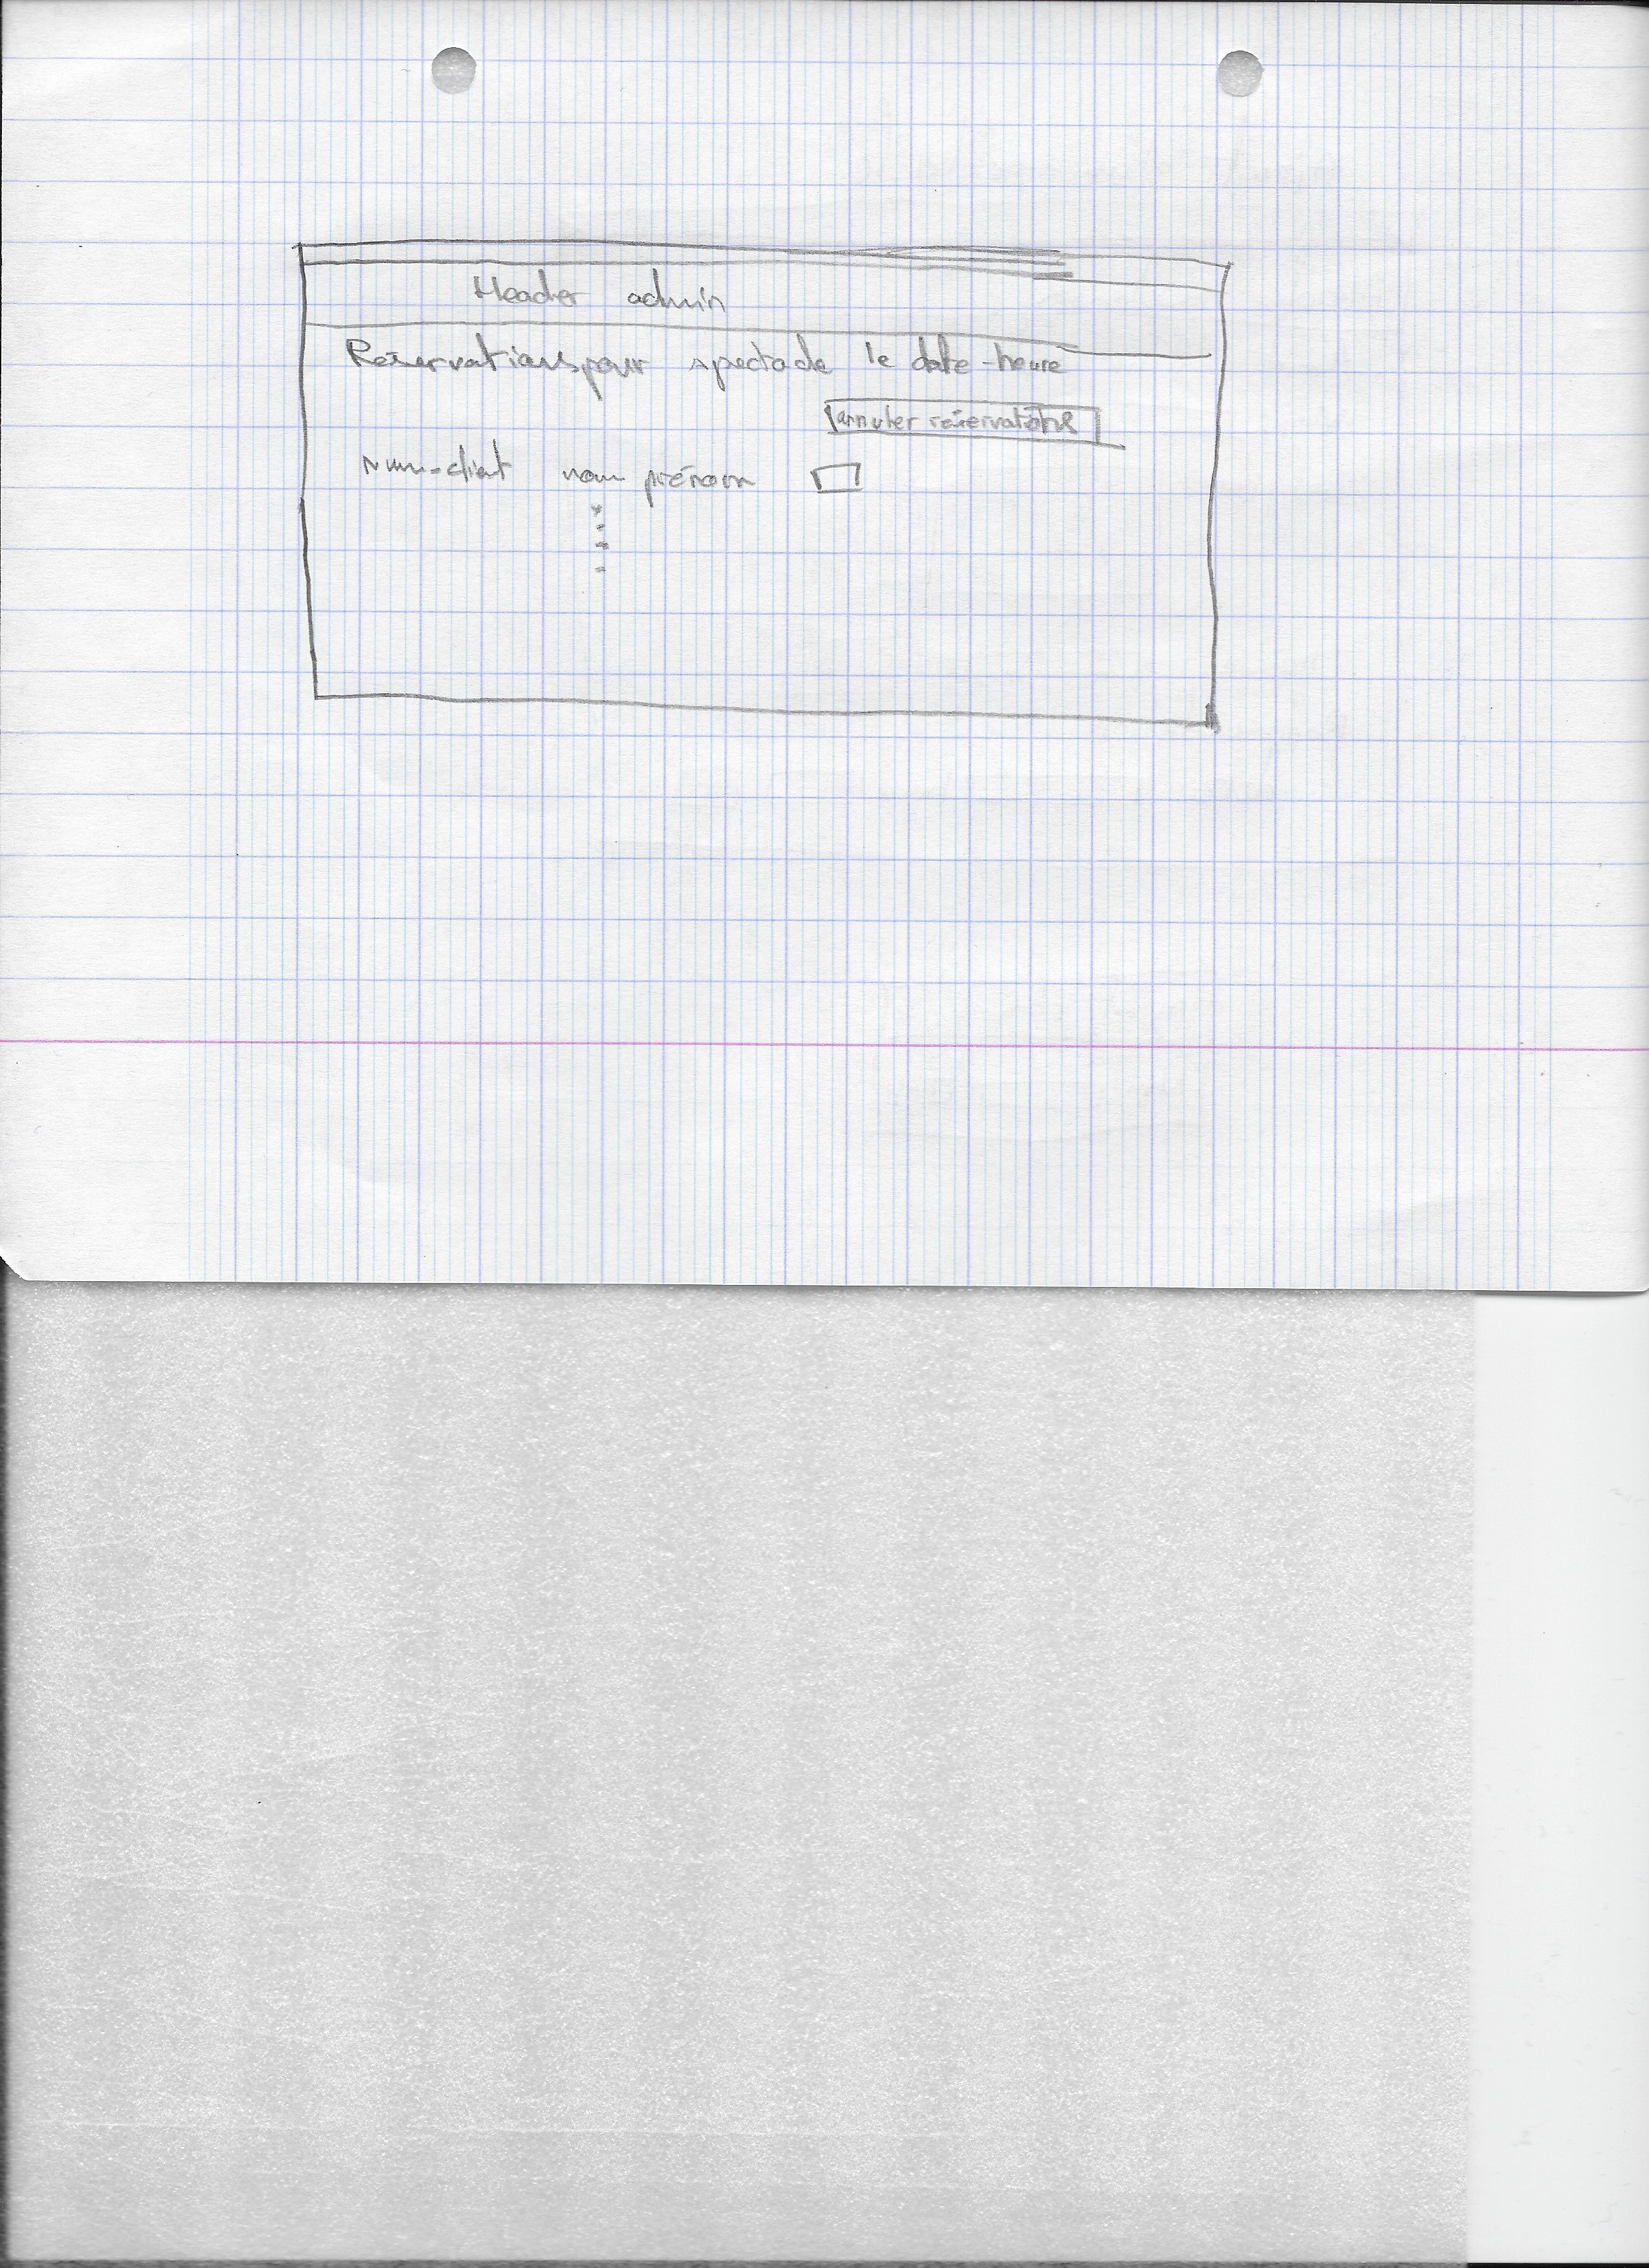 Header admin
Réservations pour spectacle le date-heure
annuler réservations
num-client nom prénom